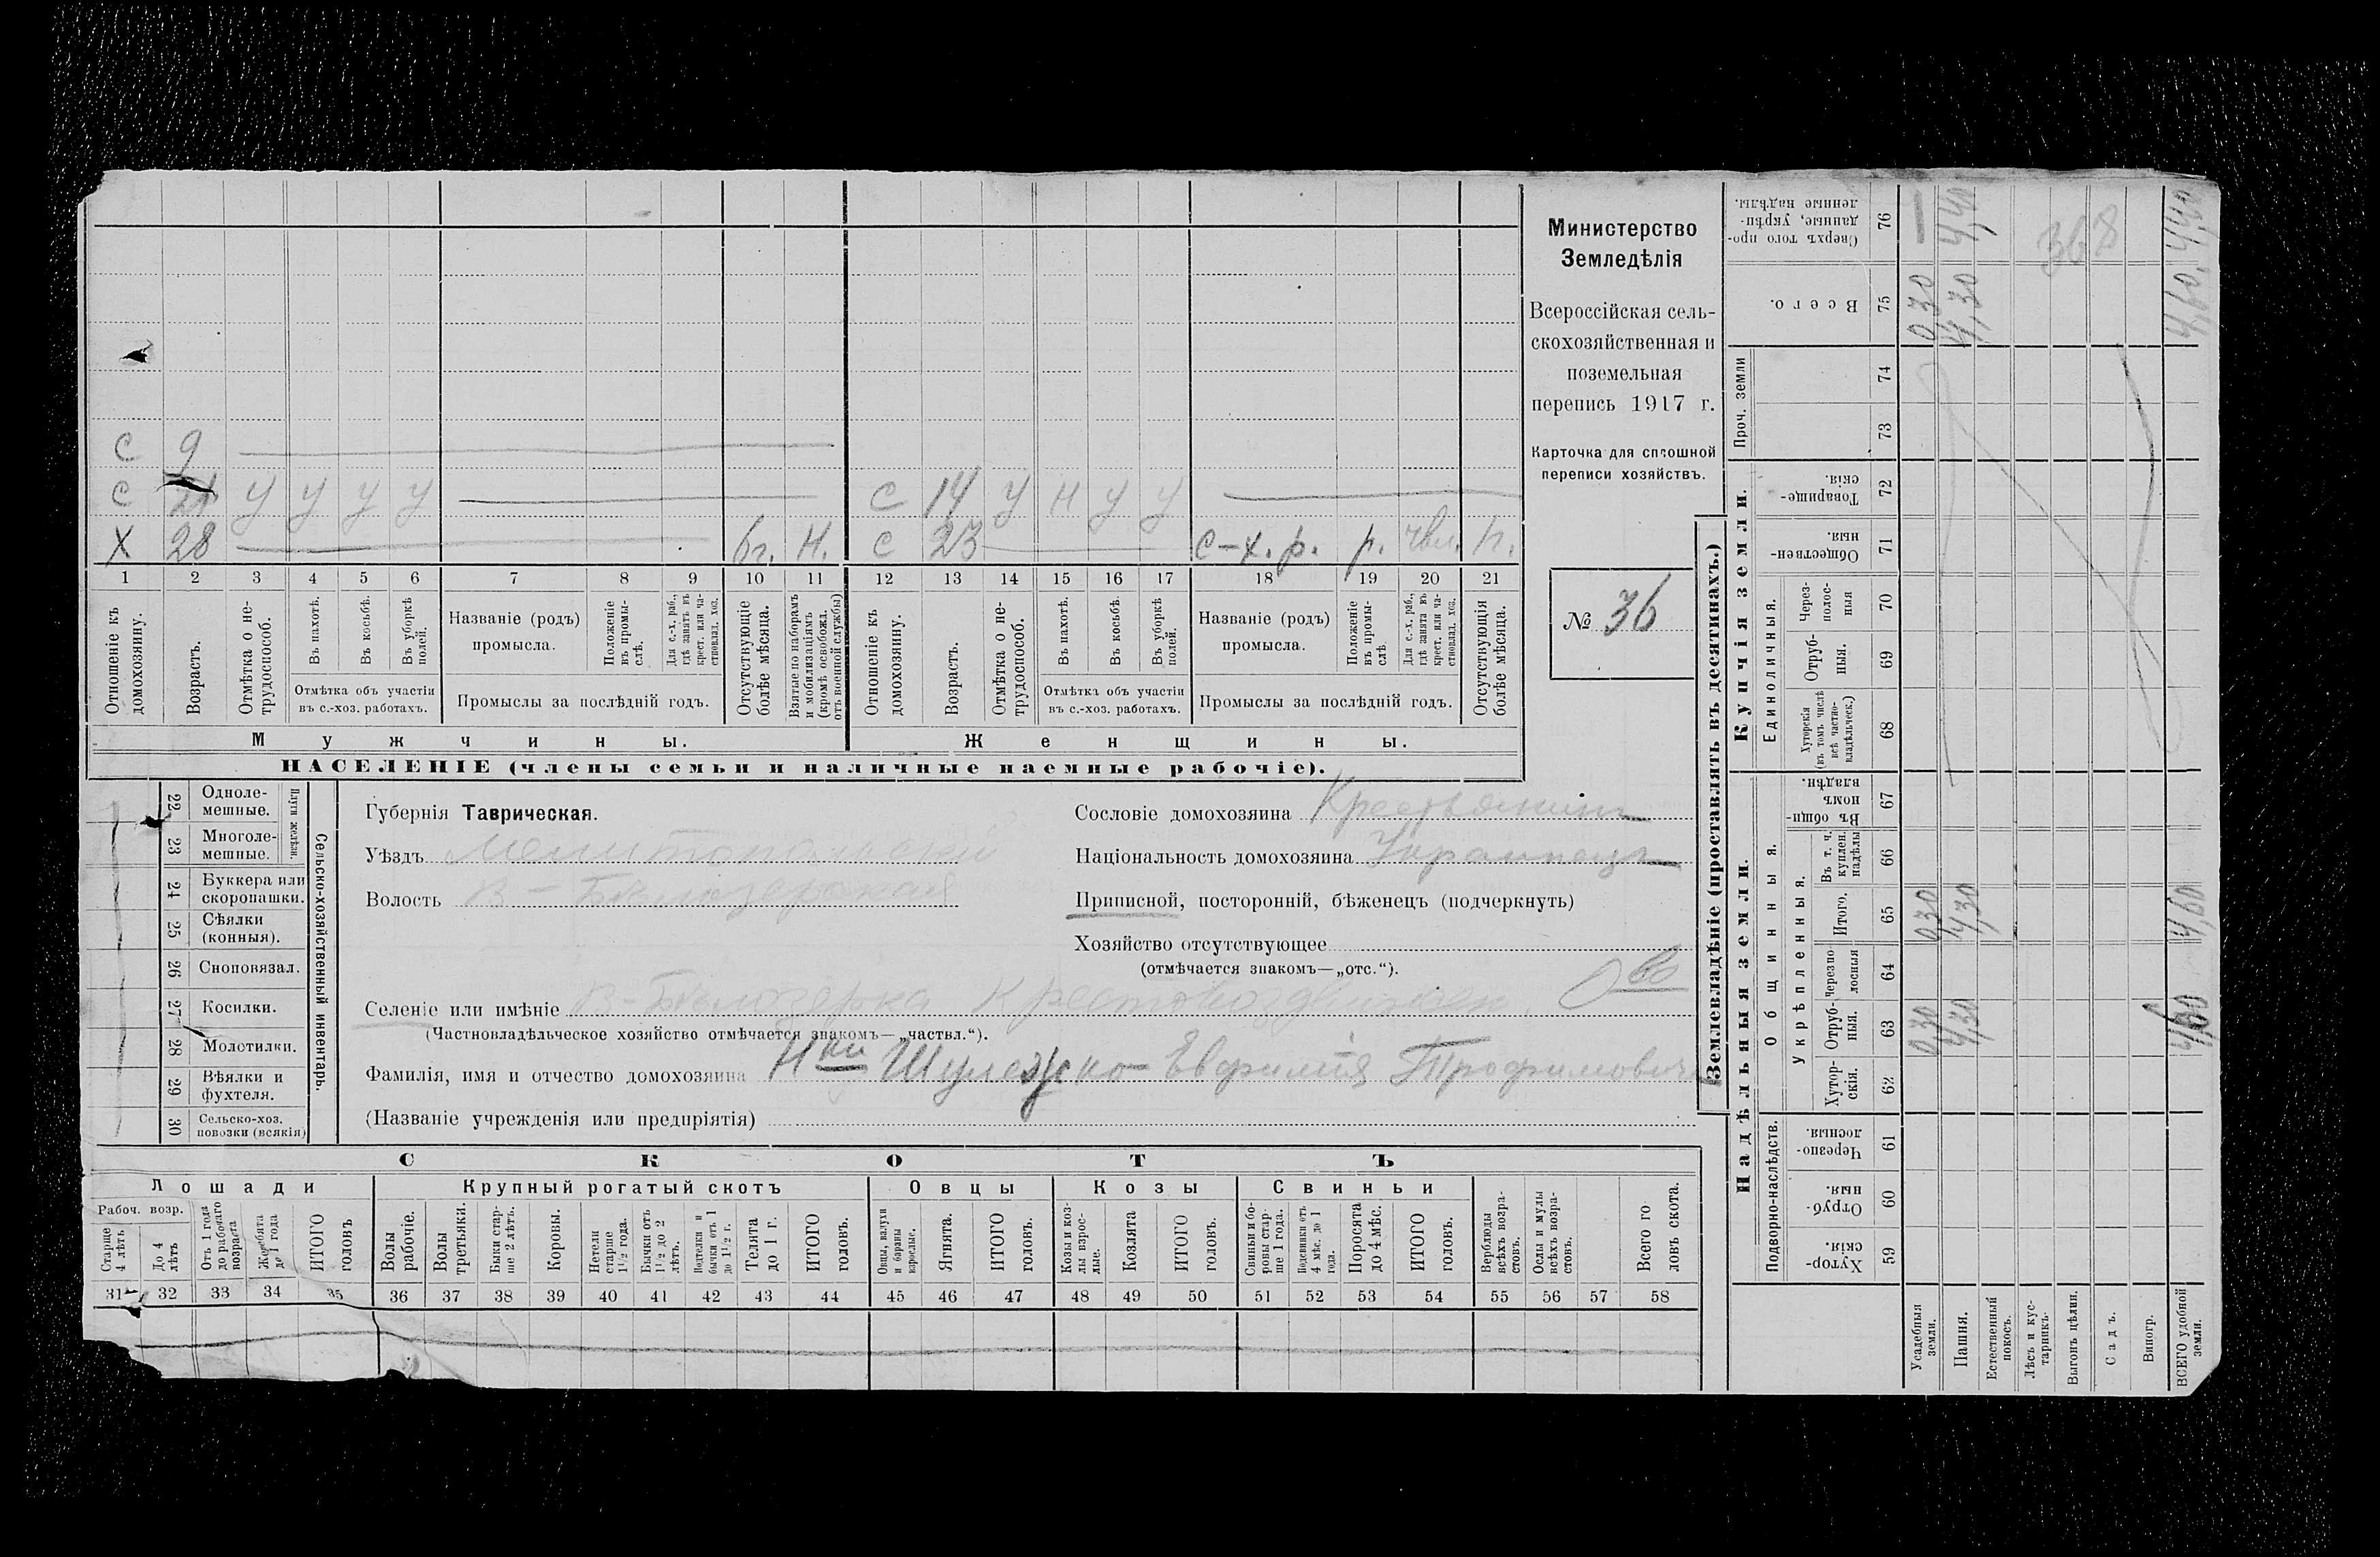 С 9
С 21 У У У У С 14 У Н У У
Х 28 6 г. Н. С 23 С-х. р. р. п.
1 2 3 4 5 6 7 8 9 10 11 12 13 14 15 16 17 18 19 20 21
Отношеніе къ домохозяину.
Возрастъ.
Отмѣтка о не-
трудоспособ.
Въ пахотѣ.
Въ косьбѣ.
Въ уборкѣ
полей.
Отмѣтка объ участіи
въ с.-хоз. работахъ.
Названіе (родъ)
промысла.
Положеніе
въ промы-
слѣ.
Для с.-х. раб.,
гдѣ занятъ въ
крест. или ча-
стновлад. хоз.
Промыслы за послѣдній годъ.
Отсутствующіе
болѣе мѣсяца.
Взятые по наборамъ
и мобилизаціямъ
(кромѣ освобожд.
отъ военной службы)
Отношеніе къ
домохозяину.
Возрастъ.
Отмѣтка о не-
трудоспособ.
Въ пахотѣ.
Въ косьбѣ.
Въ уборкѣ
полей.
Отмѣтка объ участіи
въ с.-хоз. работахъ.
Названіе (родъ)
промысла.
Положеніе
въ промы-
слѣ.
Для с.-х. раб.,
гдѣ занята въ
крест. или ча-
стновлад. хоз.
Промыслы за послѣдній годъ.
Отсутствующія
болѣе мѣсяца.
Мужчины.
Женщины.
НАСЕЛЕНІЕ (члены семьи и наличные наемные рабочіе).
Министерство
Земледѣлія
Всероссійская сель-
скохозяйственная и
поземельная
перепись 1917 г.
Карточка для сплошной
переписи хозяйствъ.
№ 36
22 Одноле-
мешные.
23 Многоле-
мешные.
Плуги желѣзн.
24 Буккера или
скоропашки.
25 Сѣялки
(конныя).
26 Сноповязал.
27 Косилки.
28 Молотилки.
29 Вѣялки и
фухтеля.
30 Сельско-хоз.
повозки (всякія)
Сельско-хозяйственный инвентарь.
Губернія Таврическая.
Уѣздъ Мелитопольский
Волость В-Бѣлозерская
Сословіе домохозяина Крестьянинъ
Національность домохозяина Украинецъ
Приписной, посторонній, бѣженецъ (подчеркнуть)
Хозяйство отсутствующее
(отмѣчается знакомъ—„отс.“).
Селеніе или имѣніе В-Бѣлозерка Крестовоздвижен. О-во
(Частновладѣльческое хозяйство отмѣчается знакомъ—„частвл.“).
Фамилія, имя и отчество домохозяина Н-ки Шулежко Евфимія Трофимовича
(Названіе учрежденія или предпріятія)
СКОТЪ
Лошади
Крупный рогатый скотъ
Овцы
Козы
Свиньи
Рабоч. возр.
Старше
4 лѣтъ
До 4
лѣтъ
Отъ 1 года
до рабочаго
возраста
Жеребята
до 1 года
ИТОГО
головъ
Волы
рабочіе.
Волы
третьяки.
Быки стар-
ше 2 лѣтъ.
Коровы.
Нетели
старше
1½ года.
Бычки отъ
1½ до 2
лѣтъ.
Подтелки и
бычки отъ 1
до 1½ г.
Телята
до 1 г.
ИТОГО
головъ.
Овцы, валухи
и бараны
взрослые.
Ягнята.
ИТОГО
головъ.
Козы и коз-
лы взрос-
лые.
Козлята
ИТОГО
головъ.
Свиньи и бо-
ровы стар-
ше 1 года.
Подсвинки отъ
4 мѣс. до 1
года.
Поросята
до 4 мѣс.
ИТОГО
головъ.
Верблюды
всѣхъ возра-
стовъ.
Ослы и мулы
всѣхъ возра-
стовъ.
Всего го
ловъ скота.
31 32 33 34 35 36 37 38 39 40 41 42 43 44 45 46 47 48 49 50 51 52 53 54 55 56 57 58
Землевладѣніе (проставлять въ десятинахъ.)
Надѣльныя земли.
Купчія земли.
Проч. земли
Подворно-наслѣдств.
Общинныя.
Укрѣпленныя.
Единоличныя.
Хутор-
скія. 59
Отруб-
ныя. 60
Черезпо-
лосныя. 61
Хутор-
скія. 62
Отруб-
ныя. 63 0,30 4,30 4,60
Черезпо
лосныя 64
Итого. 65 0,30 4,30 4,60
Въ т. ч.
куплен.
надѣлы 66
Въ общи-
номъ
владѣн. 67
Хуторскія
(въ томъ числѣ
всѣ частно-
владѣльческ.) 68
Отруб-
ныя. 69
Через-
полос-
ныя 70
Обществен-
ныя. 71
Товарище-
скія. 72
73
74
Всего. 75 0,30 4,30 4,60
Сверхъ того про-
данные, укрѣп-
ленные надѣлы. 76 — 4,40 4,40
368
Усадебныя
земли.
Пашня.
Естественный
покосъ.
Лѣсъ и кус-
тарникъ.
Выгонъ цѣлин.
Садъ.
Виногр.
ВСЕГО удобной
земли.